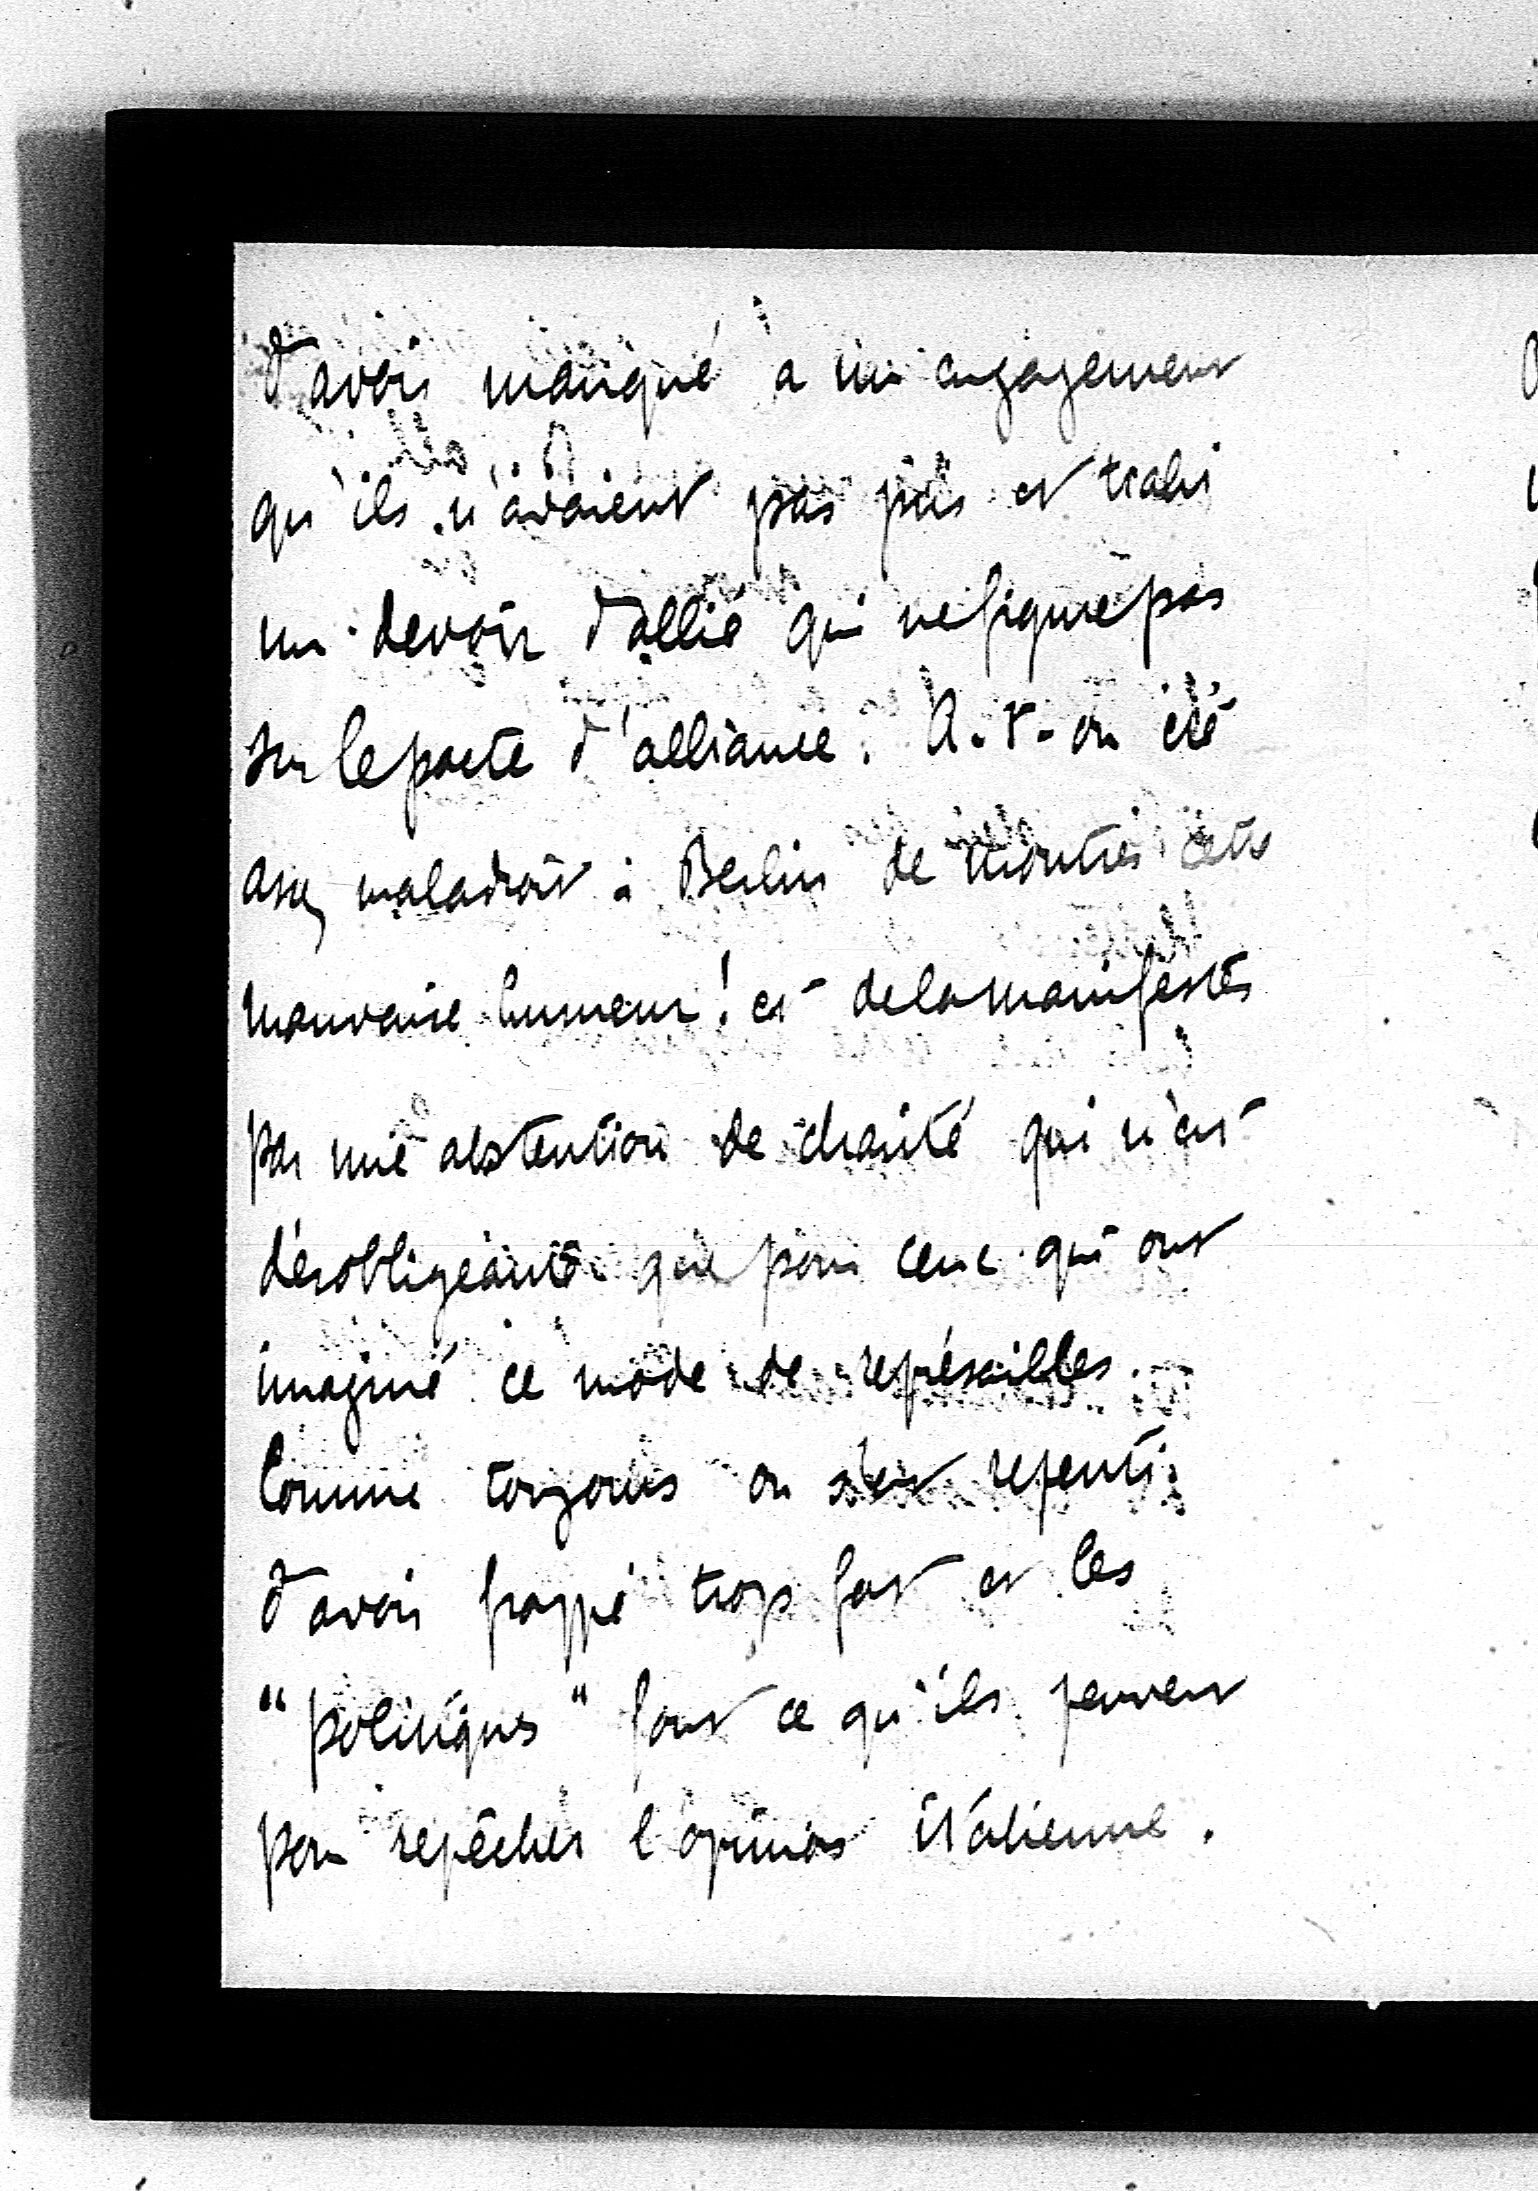 d'avoir manqué à un engagement
qu'ils n'avaient pas pris et trahi
un devoir d'allié qui ne figure pas
sur le pacte d'alliance. A-t-on été
assez maladroit à Berlin de montrer cette
mauvaise humeur ! et de la manifester
par une abstention de charité qui n'est
désobligeante que pour ceux qui ont
imaginé ce mode de représailles.
Comme toujours on s'est repenti
d'avoir frappé trop fort et les
"politiques" font ce qu'ils peuvent
pour repêcher l'opinion italienne.